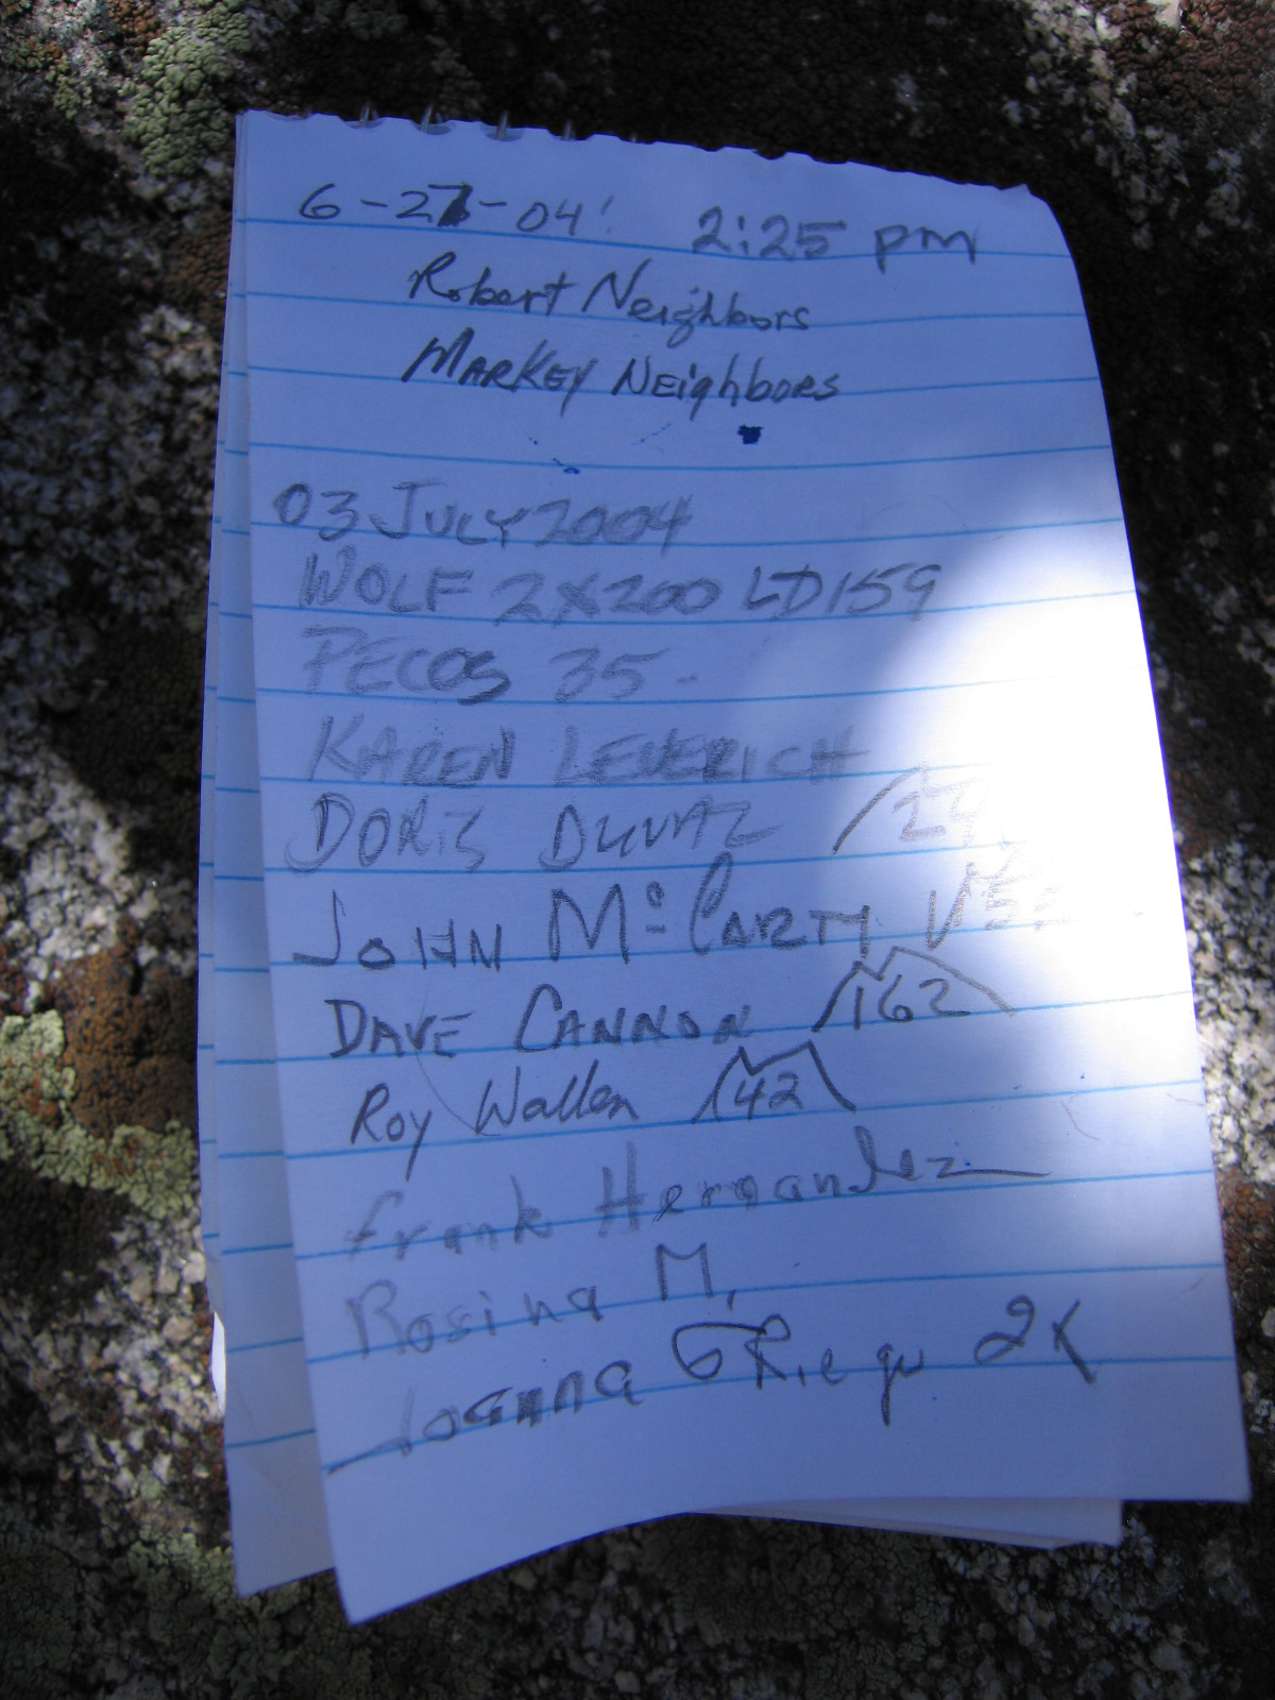 6-27-04' 2:25 pm
Robert Neighbors
MARKEY NEighboRS
03 JULY 2004
WOLF 2X200 LD159
PECOS 35
KAREN LEVERICH
DORIS DUVAL 27
JOHN McCARTY
DAVE CANNON 162
Roy Wallen 142
Frank Hernandez
Rosina M.
Joanna 2K